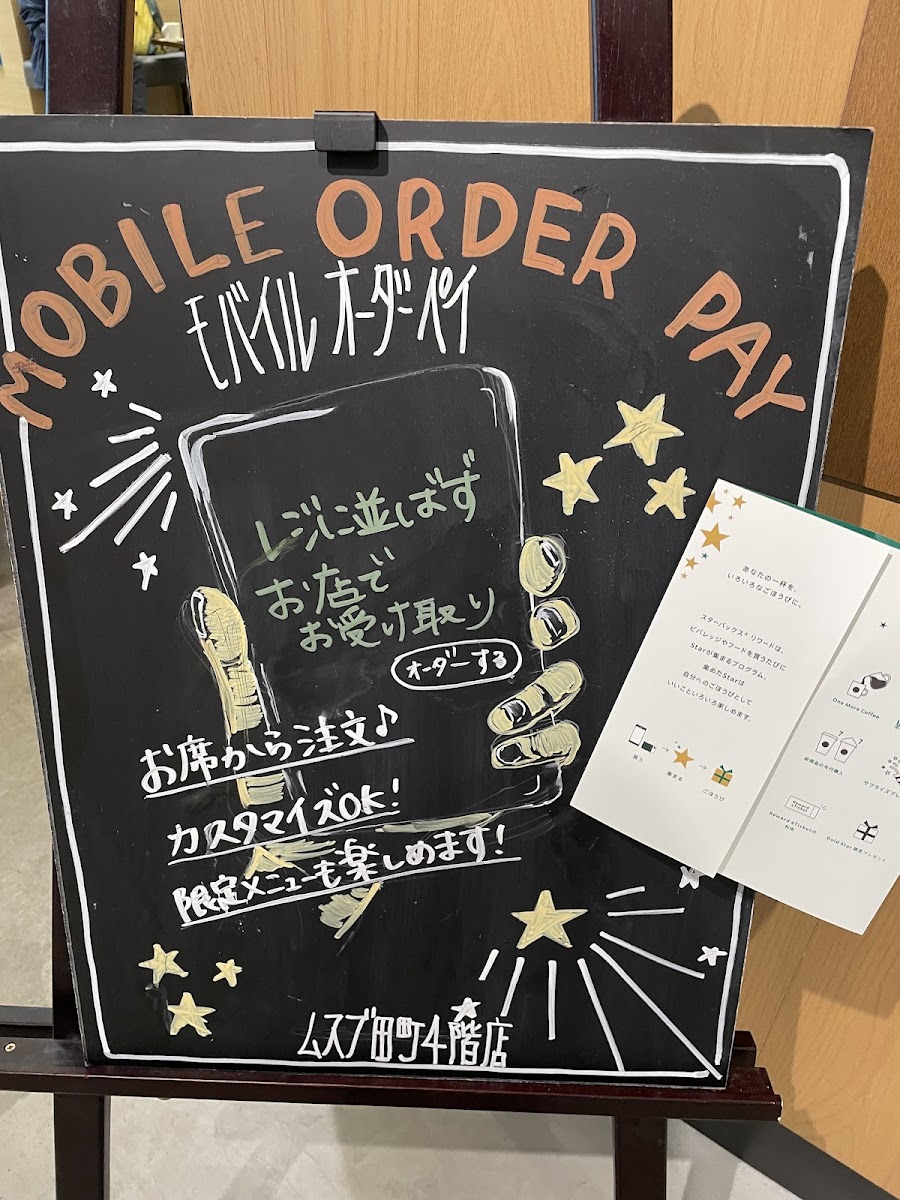 MOBILE ORDER PAY
モバイル オーダーペイ
レジに並ばず
お店で
お受け取り
オーダーする
お席から注文♪
カスタマイズOK!
限定メニューも楽しめます!
ムスブ田町4階店
あなたの一杯を、
いろいろなごほうびに。
スターバックス® リワードは、
ビバレッジやフードを買うたびに
Starが集まるプログラム。
集めたStarは
自分へのごほうびとして
いいこといろいろ楽しめます。
買う
集まる
ごほうび
One More Coffee
新商品の先行購入
サプライズプレ
Reward eTicketの
利用
Gold Star 限定プレゼント